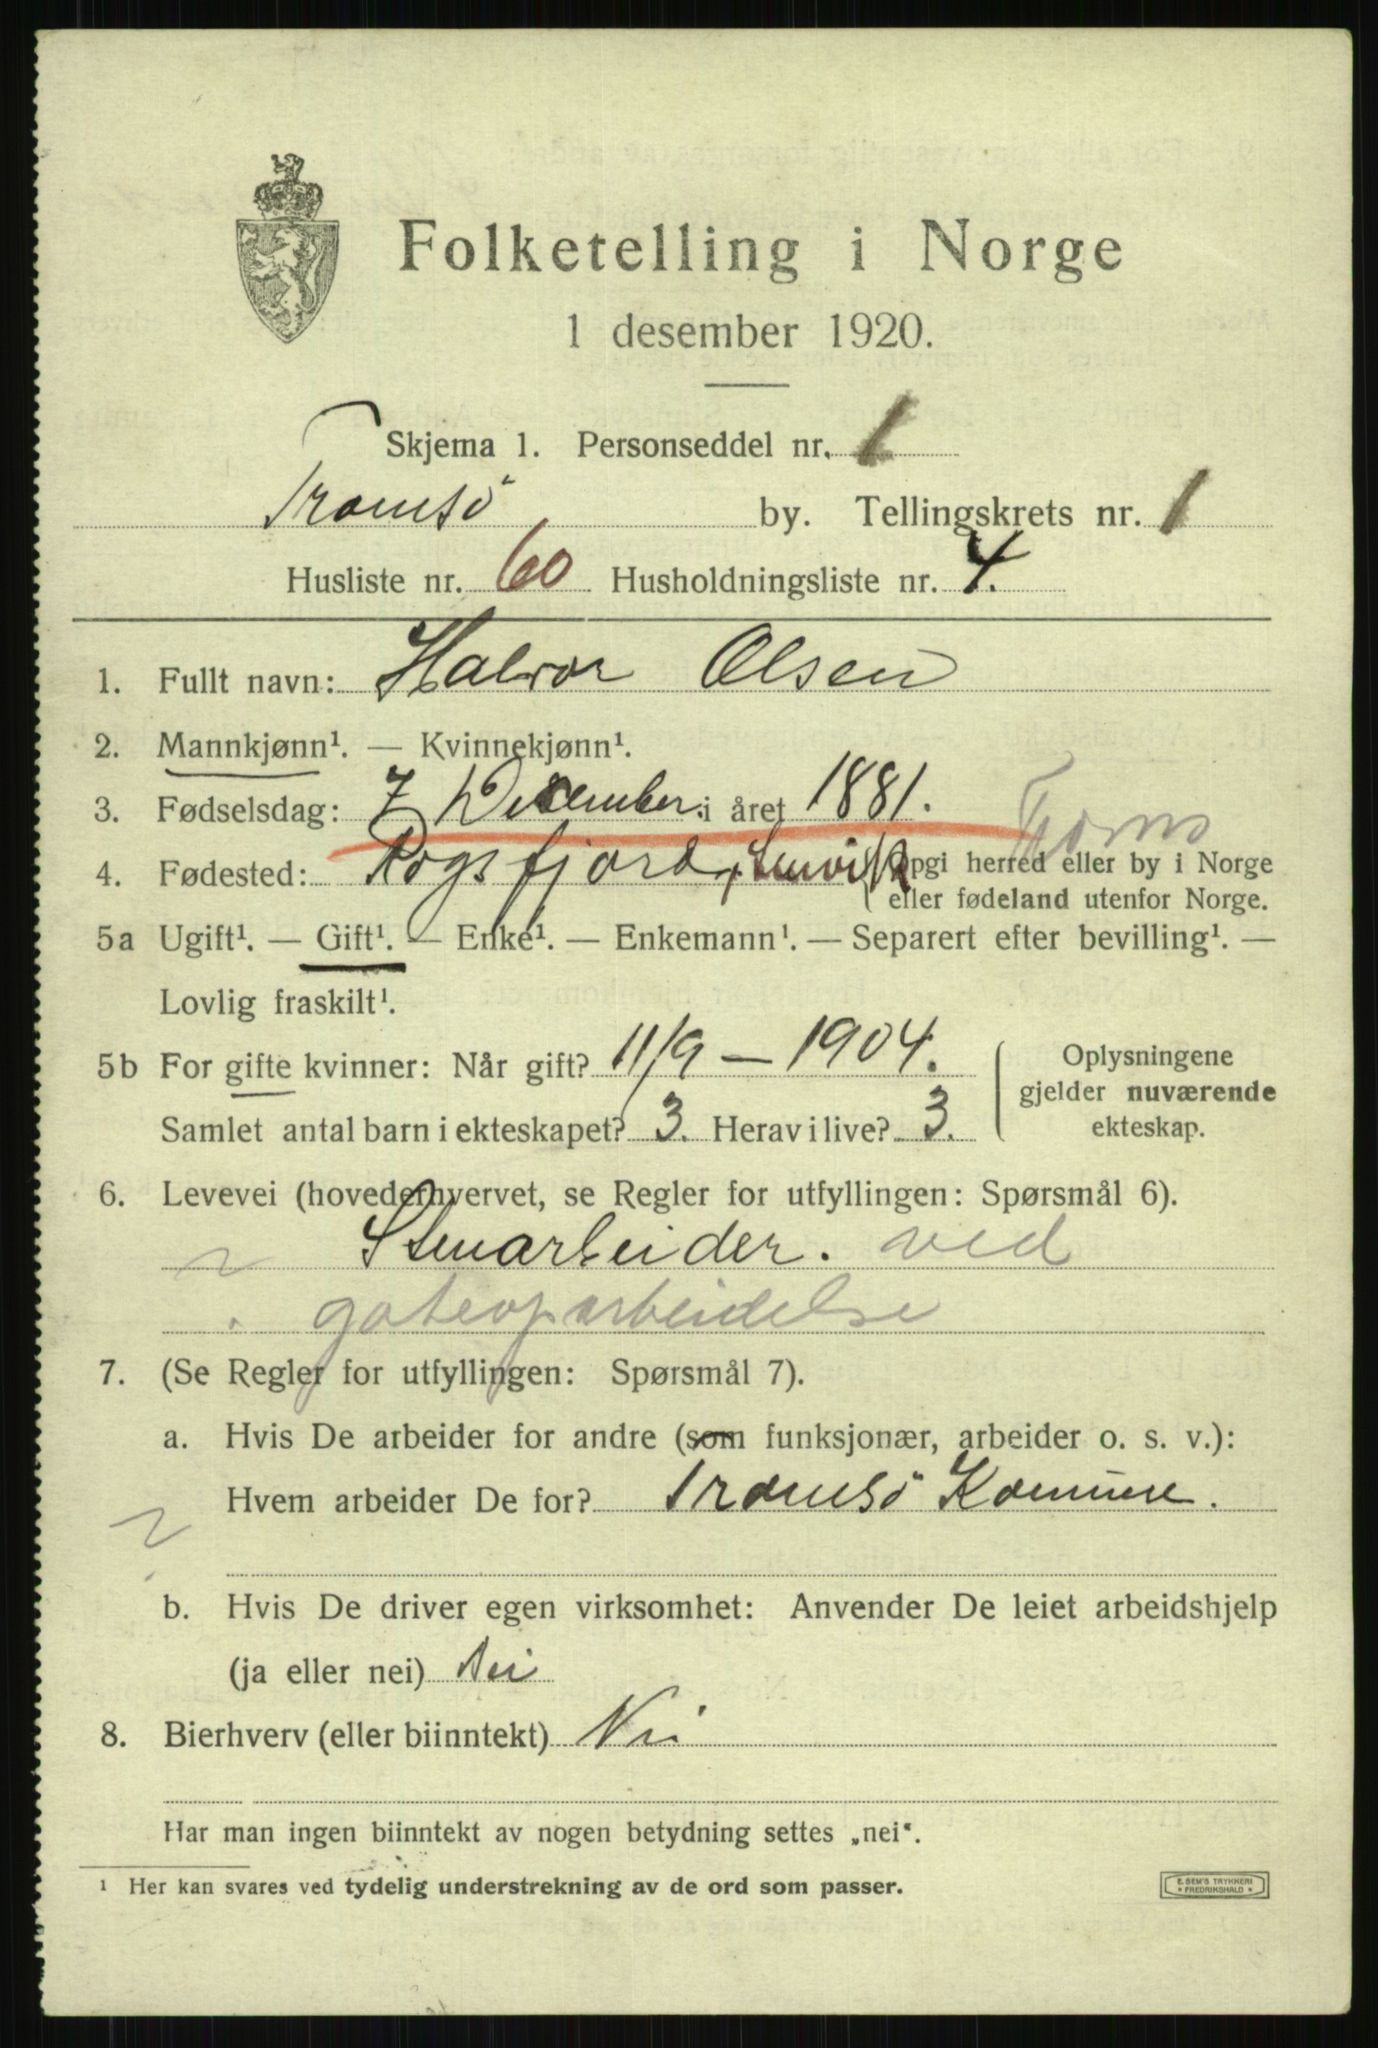 Folketelling i Norge
1 desember 1920.
Skjema 1. Personseddel nr. 1
Tromsö by. Tellingskrets nr. 1
Husliste nr. 60 Husholdningsliste nr. 4.
1. Fullt navn: Halvor Olsen
2. Mannkjønn¹. — Kvinnekjønn¹.
3. Fødselsdag: 7 Desember i året 1881.
Troms
4. Fødested: Rogsfjord, Lenvik { Opgi herred eller by i Norge
eller fødeland utenfor Norge.
5a Ugift¹. — Gift¹. — Enke¹. — Enkemann¹. — Separert efter bevilling¹. —
Lovlig fraskilt¹.
5b For gifte kvinner: Når gift? 11/9 — 1904. ( Oplysningene
gjelder nuværende
Samlet antal barn i ekteskapet? 3. Herav i live? 3. ekteskap.
6. Levevei (hovederhvervet, se Regler for utfyllingen: Spørsmål 6).
Stenarbeider. ved
gateoparbeidelse
7. (Se Regler for utfyllingen: Spørsmål 7).
a. Hvis De arbeider for andre (som funksjonær, arbeider o. s. v.):
Hvem arbeider De for? Tromsö Kommune.
b. Hvis De driver egen virksomhet: Anvender De leiet arbeidshjelp
(ja eller nei) Nei
8. Bierhverv (eller biinntekt) Nei
Har man ingen biinntekt av nogen betydning settes „nei“.
¹ Her kan svares ved tydelig understrekning av de ord som passer.
E. SEM'S TRYKKERI
* FREDRIKSHALD *